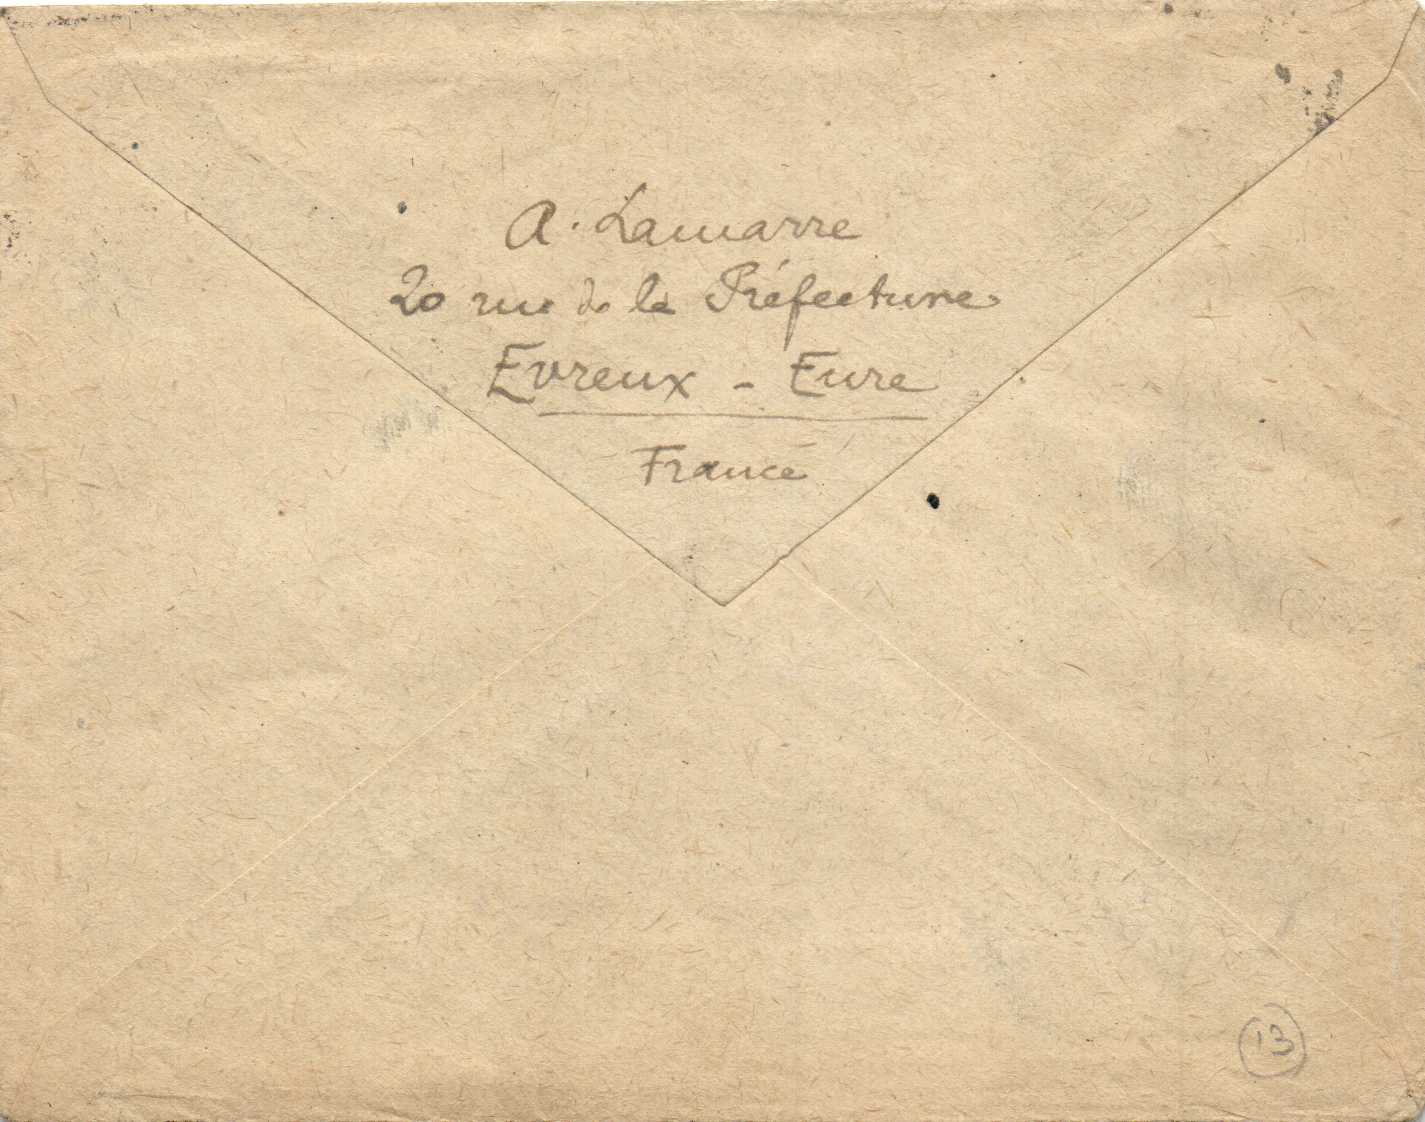 A. Lamarre
20 rue de la Préfecture
Evreux - Eure
France
13